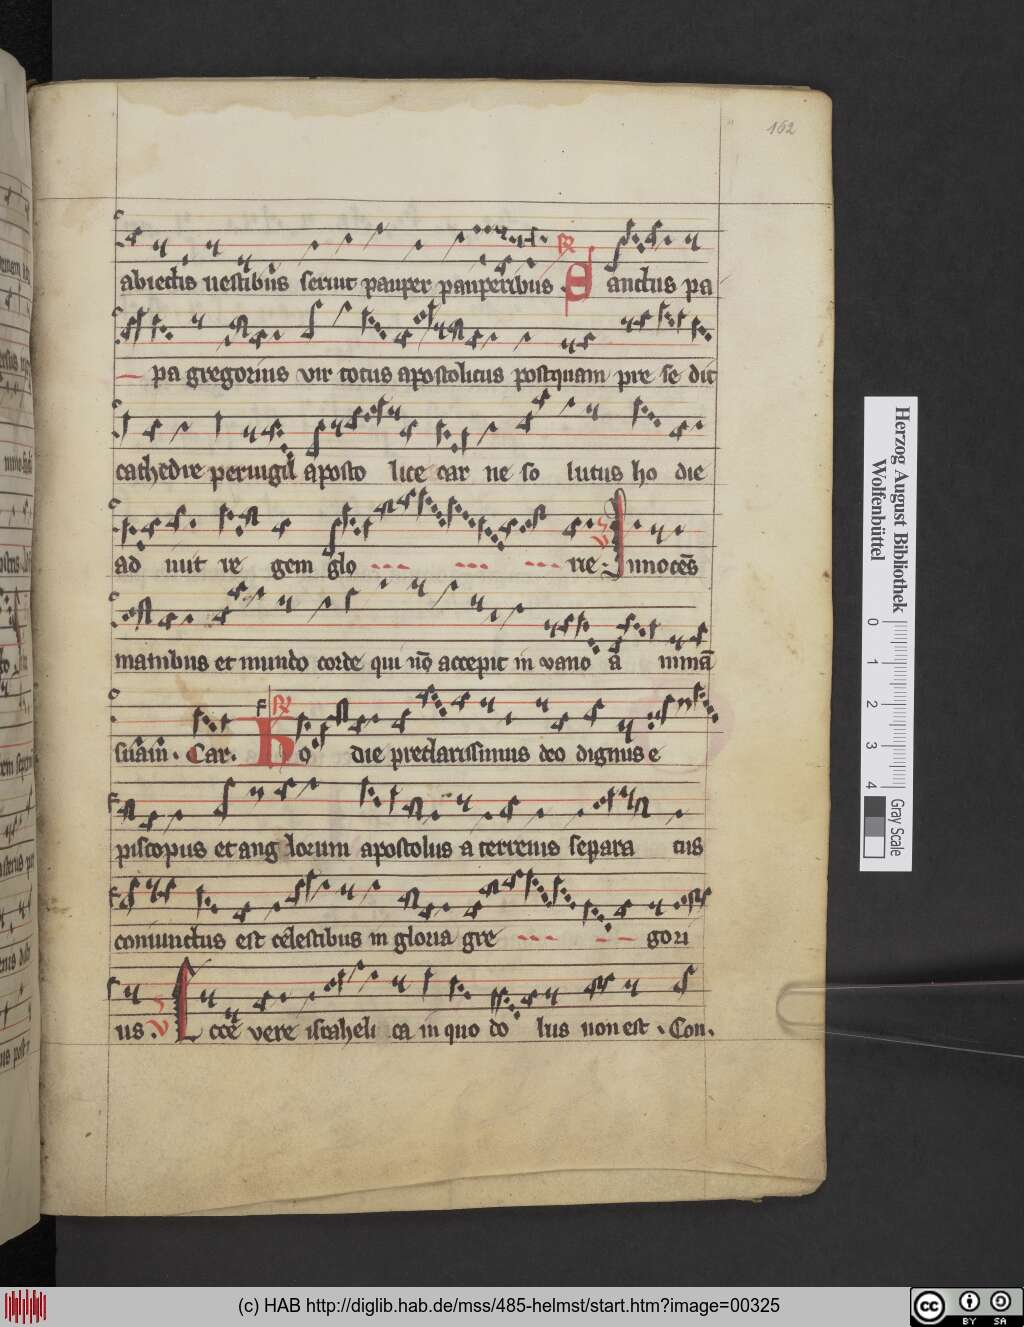 162
abiectis uestibus seruit pauper pauperibus . R Sanctus pa
pa gregorius vir totus apostolicus postquam pre se dit
cathedre peruigil aposto lice car ne so lutus ho die
ad uiit re gem glo rie . V Innocēs
manibus et mundo corde qui nō accepit in vano a nimā
suām . Car . R Ho die preclarissimus deo dignus e
piscopus et ang lorum apostolus a terrenis separa tus
coniunctus est celestibus in gloria gre gori
us . V Ecce vere israheli ta in quo do lus non est . Con .
Herzog August Bibliothek
Wolfenbüttel
0 1 2 3 4
Gray Scale
(c) HAB http://diglib.hab.de/mss/485-helmst/start.htm?image=00325
cc BY SA